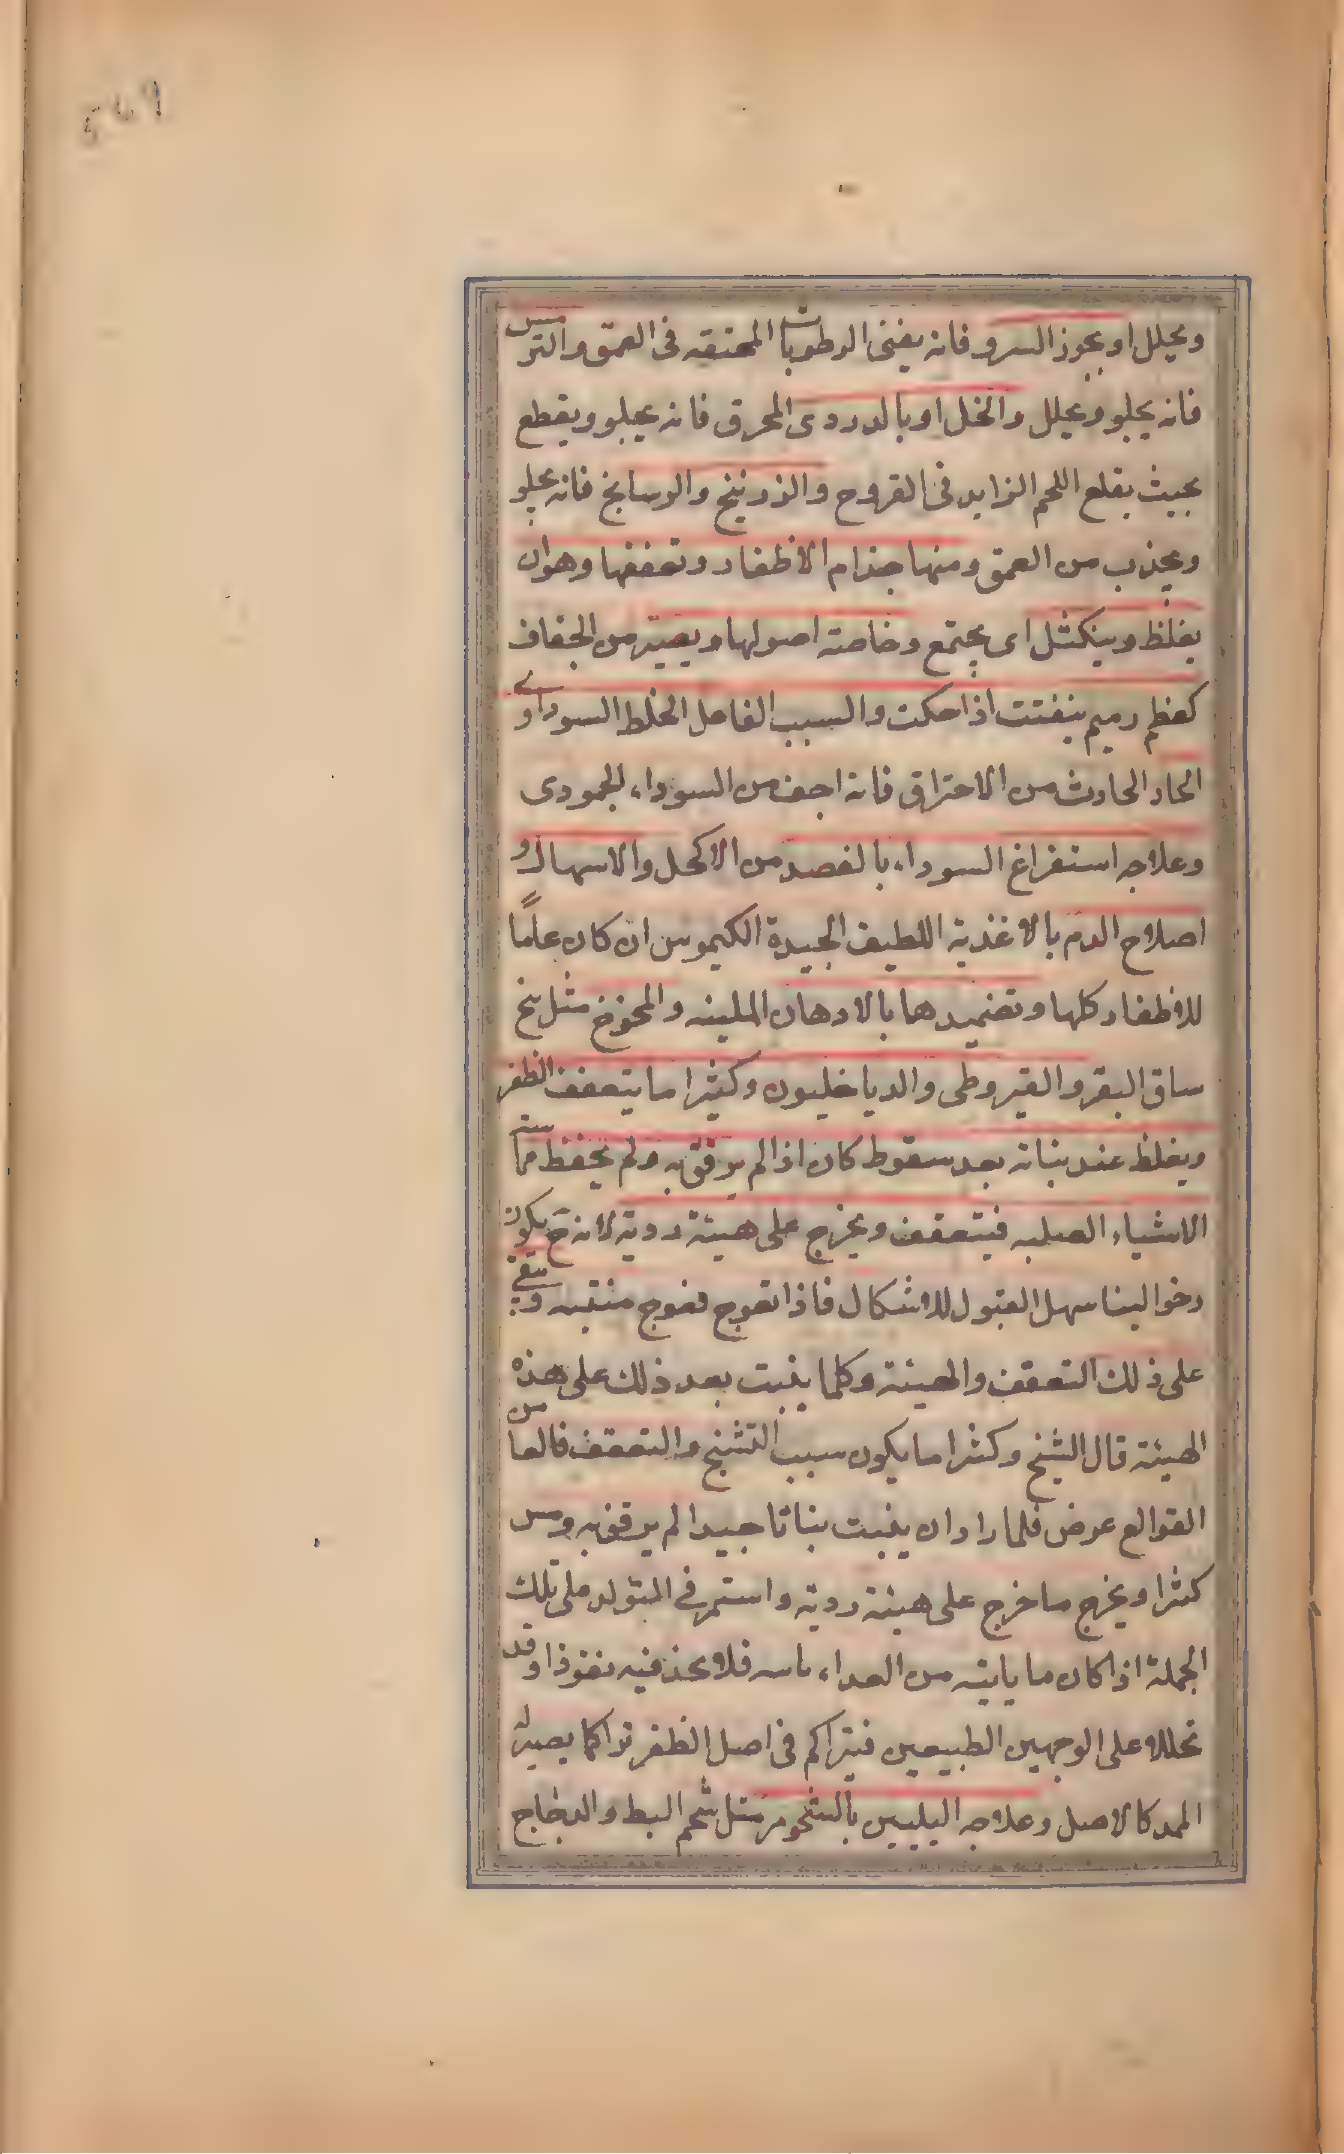 ويحلل او بجوز السرو فانه يفنى الرطوبات المحتقنه فى العمق والترمس
فانه يجلو ويحلل والخل او بالدردى المحرق فانه يجلو ويقطع
بحيث يقلع اللحم الزايد فى القروح والزرنيخ والرسابخ فانه يجلو
ويجذب من العمق ومنها جذام الاظفار وتعففها وهو ان
يغلظ ويتكتل اى يجتمع وخاصته اصولها ويصير من الجفاف
كعظم رميم يتفتت اذا حكت والسبب الفاعل الخلط السوداوى
الحار الحادث من الاحتراق فانه اجف من السوداء الجمودى
وعلاجه استفراغ السوداء بالفصد من الاكحل والاسهال و
اصلاح الدم بالاغذية اللطيف الجيدة الكيموس ان كان عاما
للاظفار كلها وتضميدها بالادهان الملينه والمخوخ مثل مخ
ساق البقر والقيروطى والدياخليون وكثيرا ما يتعفف الظفر
ويغلظ عند نباته بعد سقوط كان اذا لم يرفق به ولم يحفظ مماسته
الاشياء الصلبه فيتعقف ويخرج على هيئة ردية لانه ح يكون
رخوا لينا سهل القبول للاشكال فاذا تعوج تعوج منتبه ويبقى
على ذلك التعقف والهيئة وكلما ينبت بعد ذلك على هذه
الهيئة قال الشيخ وكثيرا ما يكون سبب التشنج والتعقف فالعا من
القوالع عرض فلما اراد ان ينبت نباتا جيدا لم يرفق به ومس
كثرا ويخرج ما خرج على هيئة ردية واستمر فى المتولد على تلك
الجملة اذا كان ما ياتيه من الغداء ياسه فلا يجد فيه نفوذا وقد
تحللا على الوجهين الطبيعين فيتراكم فى اصل الظفر تراكما يصير له
الممد كالاصل وعلاجه التليين بالشحوم مثل شحم البط والدجاج